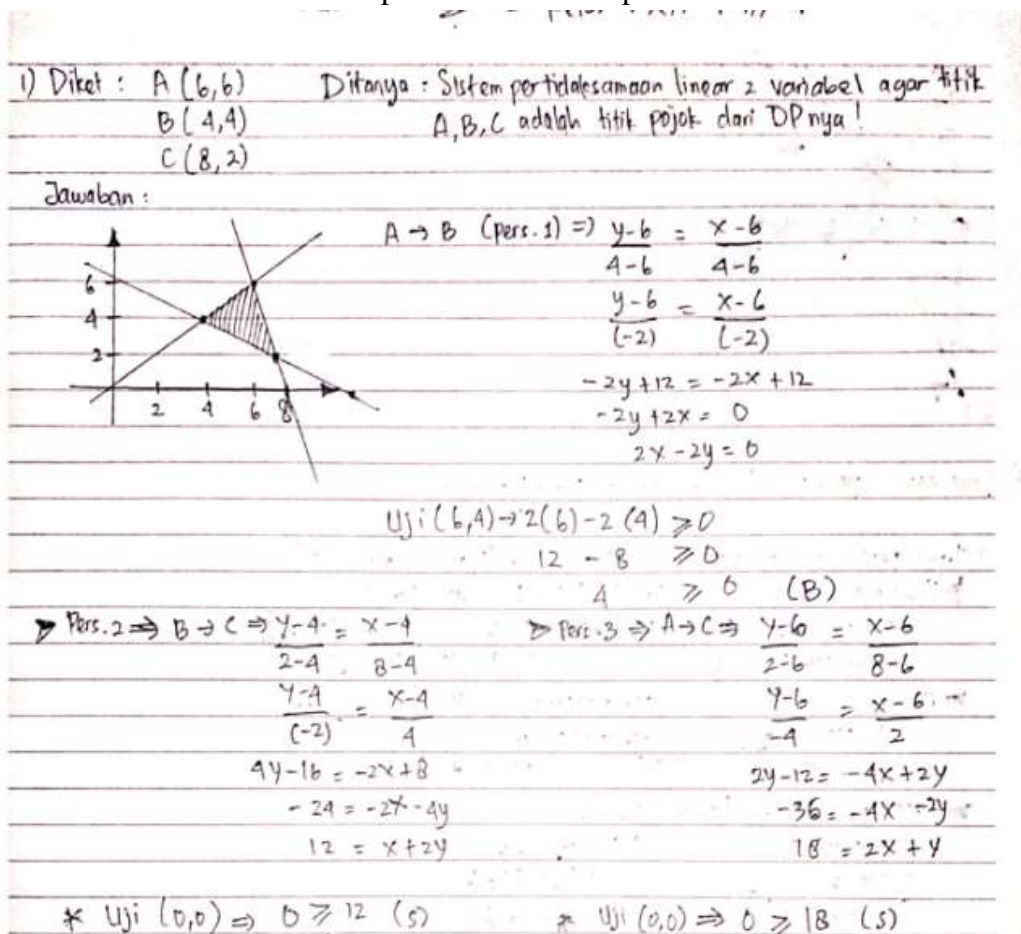 1) Diket : A (6,6) Ditanya : Sistem pertidaksamaan linear 2 variabel agar titik
B (4,4) A, B, C adalah titik pojok dari DP nya !
C (8,2)
Jawaban :
A → B (pers. 1) => y-6 / 4-6 = x-6 / 4-6
y-6 / (-2) = x-6 / (-2)
-2y+12 = -2x+12
-2y+2x = 0
2x-2y=0
6
4
2
2 4 6 8
Uji (6,4) → 2(6)-2(4) ⩾ 0
12 - 8 ⩾ 0
4 ⩾ 0 (B)
Pers. 2 => B → C => y-4 / 2-4 = x-4 / 8-4
y-4 / (-2) = x-4 / 4
4y-16 = -2x+8
-24 = -2x-4y
12 = x+2y
Pers. 3 => A → C => y-6 / 2-6 = x-6 / 8-6
y-6 / -4 = x-6 / 2
2y-12 = -4x+24
-36 = -4x-2y
18 = 2x+y
* Uji (0,0) => 0 ⩾ 12 (S) * Uji (0,0) => 0 ⩾ 18 (S)